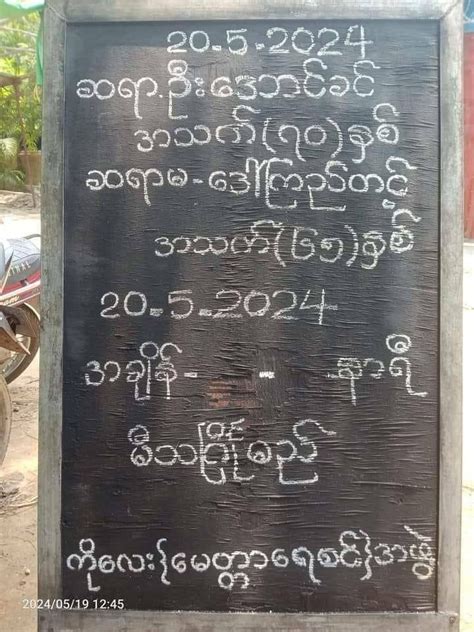 20-5-2024
ဆရာ.ဦးအောင်ခင်
အသက်(၇၀)နှစ်
ဆရာမ-ဒေါ်ကြည်တင့်
အသက်(၆၅)နှစ်
20-5-2024
အချိန်- - နာရီ
မီးသင်္ဂြိုဟ်မည်
ကိုလေး{မေတ္တာရေစင်}အဖွဲ့
2024/05/19 12:45